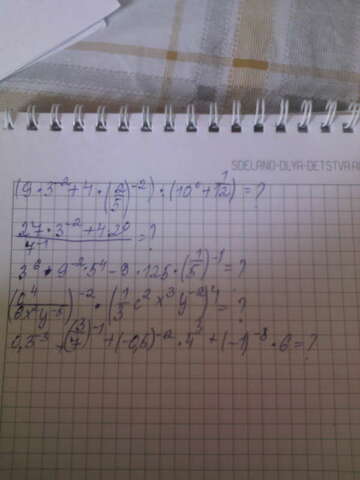 SDELANO-DLYA-DETSTVA.R
(9·3⁻²+4·(2/5)⁻²)·(10⁰+1/12)=?
(27·3⁻²+4·2⁰)/4⁻¹=?
3⁶·9⁻²·5⁴-8·125·(1/5)⁻¹=?
(c⁴/6x²y⁻⁵)⁻²·(1/3c²x³y⁻²)⁴=?
0,5⁻³-(3/7)⁻¹+(-0,5)⁻²·4³+(-1)⁻⁸·6=?